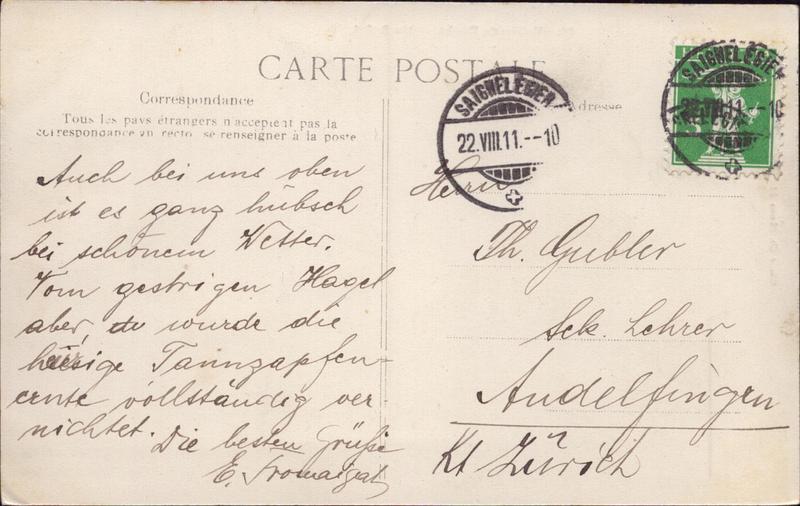 CARTE POSTALE
Correspondance
Tous les pays étrangers n'acceptent pas la
correspondance au recto, se renseigner à la poste
Adresse
SAIGNELEGIER
22.VIII.11.--10
SAIGNELEGIER
Auch bei uns oben
ist es ganz hübsch
bei schönem Wetter.
Vom gestrigen Hagel
aber, da wurde die
hiesige Tannzapfen-
ernte vollständig ver-
nichtet. Die besten Grüße
E. Fromaigeat
Herrn
Th. Gubler
Sek. Lehrer
Andelfingen
Kt Zürich